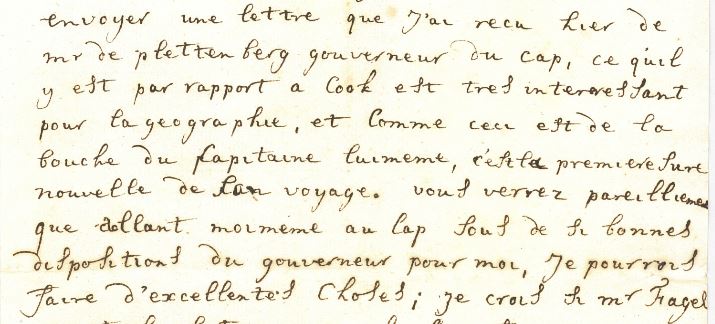 envoyer une lettre que J'ai recu hier de
mr de plettenberg gouverneur du cap, ce qu'il
y est par rapport a Cook est tres interressant
pour la geographie, et Comme ceci est de la
bouche du Capitaine luimeme, c'est la premiere sure
nouvelle de son voyage. vous verrez pareillement
que allant moimeme au Cap sous de si bonnes
dispositions du gouverneur pour moi, Je pourrois
faire d'excellentes Choses; je crois si mr Fagel